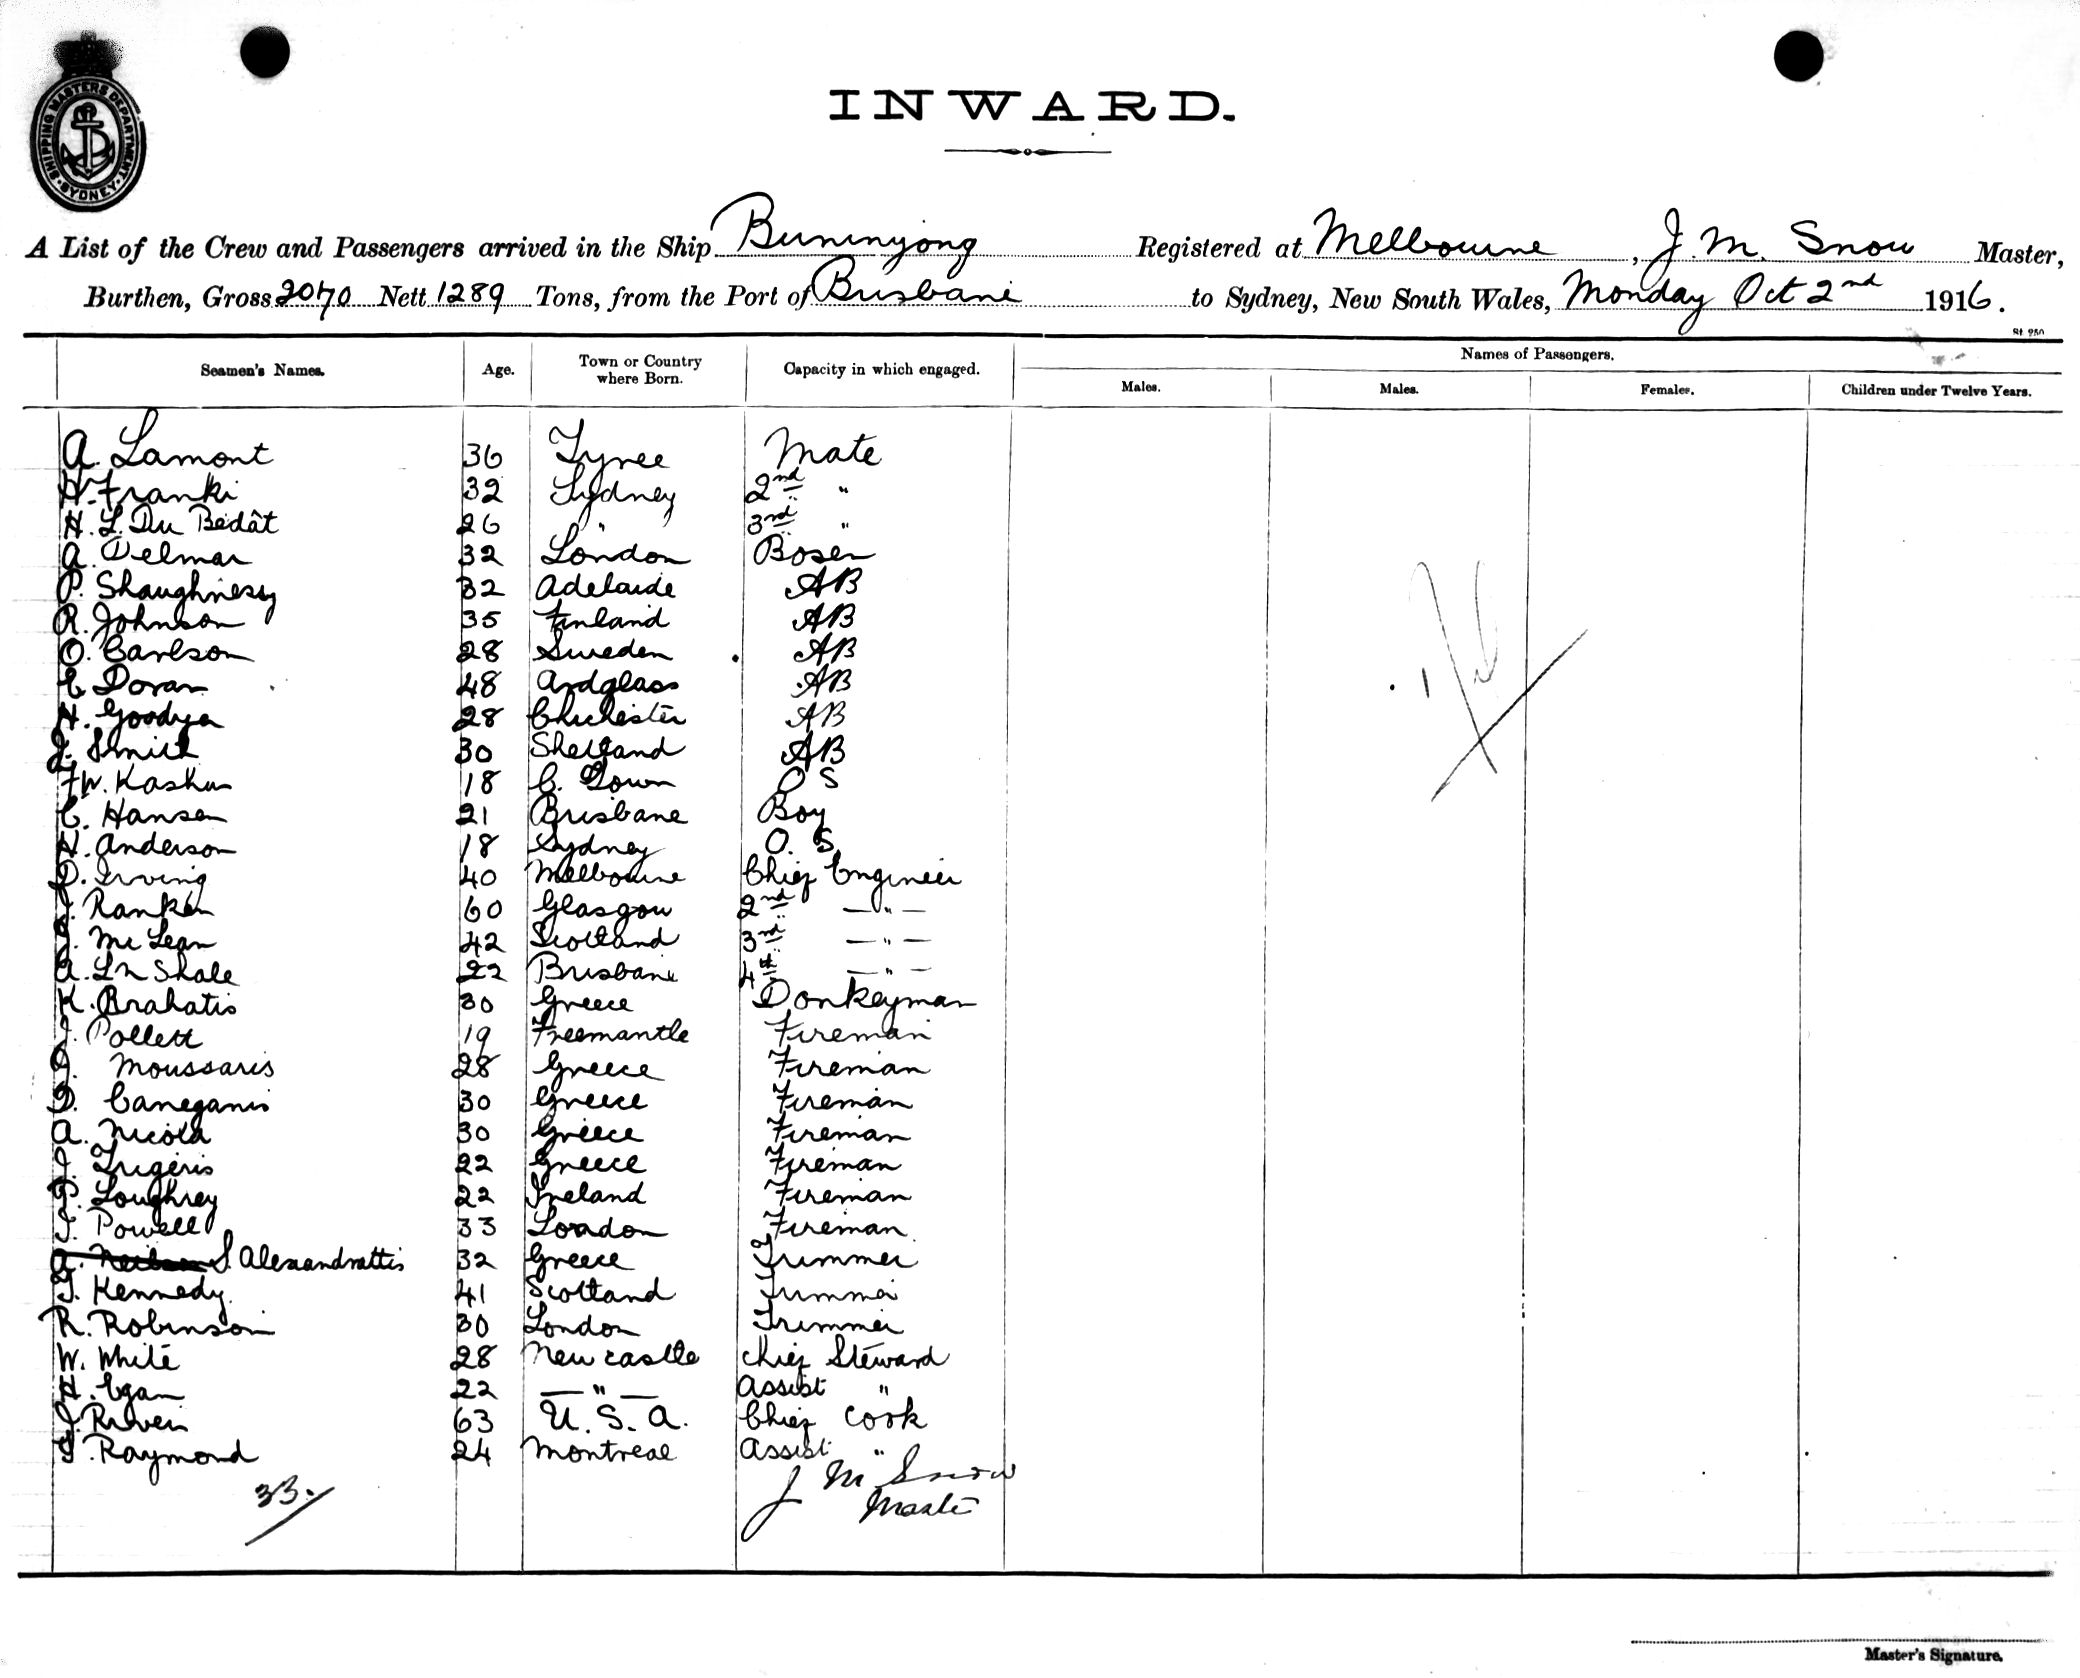 SHIPPING MASTERS DEPARTMENT
SYDNEY
INWARD.
A List of the Crew and Passengers arrived in the Ship Buninyong Registered at Melbourne, J. M. Snow Master,
Burthen, Gross 2070 Nett 1289 Tons, from the Port of Brisbane to Sydney, New South Wales, Monday Oct 2nd 1916.
St. 250
Seamen's Names. Age. Town or Country where Born. Capacity in which engaged. Names of Passengers.
Males. Males. Females. Children under Twelve Years.
A. Lamont 36 Tyree Mate
H. Franki 32 Sydney 2nd "
H. L. Du Bedât 26 " 3rd "
A. Delmar 32 London Bosen
P. Shaughnessy 32 Adelaide AB
R. Johnson 35 Finland AB
O. Carlson 28 Sweden AB
E Doran 48 Ardglass AB
H. Goodyer 28 Chichester AB
J. Smith 30 Shetland AB
F W. Kaskus 18 C. Town O S
C. Hansen 21 Brisbane Boy
H. Anderson 18 Sydney O. S.
D. Irving 40 Melbourne Chief Engineer
J. Ranken 60 Glasgow 2nd — " —
J. McLean 42 Scotland 3rd — " —
A. Skale 22 Brisbane 4th — " —
K. Brahatis 30 Greece Donkeyman
J. Pollett 19 Freemantle Fireman
J. Moussaris 28 Greece Fireman
D. Caneganis 30 Greece Fireman
A. Nicola 30 Greece Fireman
J. Trigeris 22 Greece Fireman
P. Loughrey 22 Ireland Fireman
T. Powell 33 London Fireman
S. Alexandrattis 32 Greece Trimmer
T. Kennedy. 41 Scotland Trimmer
R. Robinson 30 London Trimmer
W. White 28 New castle Chief Steward
H. Egan 22 — " — Assist "
J. Riven 63 U. S. A. Chief Cook
T. Raymond 24 Montreal Assist "
33.
J M Snow
Master
Master's Signature.